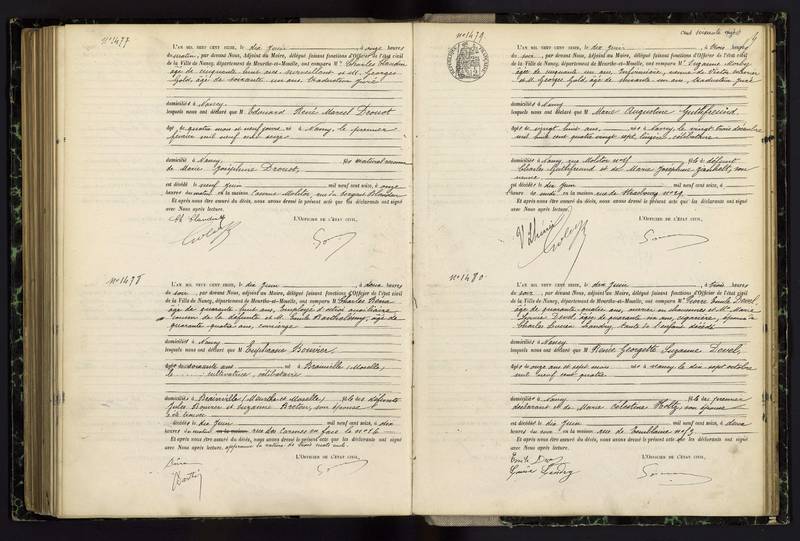 No 1477
L'AN MIL NEUF CENT SEIZE, le dix Juin, à onze heures
du matin, par devant Nous, Adjoint au Maire, délégué faisant fonctions d'Officier de l'état civil
de la Ville de Nancy, département de Meurthe-et-Moselle, ont comparu M. Charles
âgé de cinquante huit ans, surveillant et M. Georges
Gold, âgé de soixante un ans, traducteur juré
domiciliés à Nancy
lesquels nous ont déclaré que M Edouard René Marcel Drouot
âgé de quatre mois et neuf jours, né à Nancy, le premier
février mil neuf cent seize
domicilié à Nancy, fils naturel
de Marie Joséphine Drouot,
est décédé le neuf Juin mil neuf cent seize, à onze
heures du matin en la maison Caserne Molitor, rue du Sergent Blandan
Et après nous être assuré du décès, nous avons dressé le présent acte que les déclarants ont signé
avec Nous après lecture.
L'OFFICIER DE L'ÉTAT CIVIL,
No 1478
L'AN MIL NEUF CENT SEIZE, le dix Juin, à deux heures
du soir, par devant Nous, Adjoint au Maire, délégué faisant fonctions d'Officier de l'état civil
de la Ville de Nancy, département de Meurthe-et-Moselle, ont comparu M. Charles
âgé de quarante huit ans, Employé d'octroi auxiliaire
cousin de la défunte et M. Emile Barthélémy, âgé de
quarante quatre ans, concierge
domiciliés à Nancy
lesquels nous ont déclaré que M Euphrasie Bouvier
âgée de soixante ans, née à Brainville (Moselle)
le ..... cultivatrice, célibataire
domiciliée à Brainville (Meurthe et Moselle) fille des défunts
Jules Bouvier et Suzanne Breton, son épouse
a été trouvée
décédée le dix Juin mil neuf cent seize, à dix
heures du matin rue des Carmes en face le no 14
Et après nous être assuré du décès, nous avons dressé le présent acte que les déclarants ont signé
avec Nous après lecture, approuvant la rature de trois mots nuls.
L'OFFICIER DE L'ÉTAT CIVIL,
No 1479
L'AN MIL NEUF CENT SEIZE, le dix Juin, à trois heures
du soir, par devant Nous, Adjoint au Maire, délégué faisant fonctions d'Officier de l'état civil
de la Ville de Nancy, département de Meurthe-et-Moselle, ont comparu Me Suzanne
âgée de cinquante un ans, Infirmière, veuve de Victor
et M. Georges Gold, âgé de soixante un ans, traducteur juré
domiciliés à Nancy
lesquels nous ont déclaré que M Marie Augustine
âgée de vingt huit ans, née à Nancy, le vingt trois décembre
mil huit cent quatre vingt sept, lingère, célibataire
domiciliée à Nancy, rue Molitor fille de défunt
Charles et de Marie Joséphine son
veuve
est décédée le dix Juin mil neuf cent seize, à
heure de midi, en la maison rue de Strasbourg no 29
Et après nous être assuré du décès, nous avons dressé le présent acte que les déclarants ont signé
avec Nous après lecture.
L'OFFICIER DE L'ÉTAT CIVIL,
No 1480
L'AN MIL NEUF CENT SEIZE, le dix Juin, à trois heures
du soir, par devant Nous, Adjoint au Maire, délégué faisant fonctions d'Officier de l'état civil
de la Ville de Nancy, département de Meurthe-et-Moselle, ont comparu M. Pierre Emile Devel
âgé de quarante quatre ans, ouvrier en chaussures et Me Marie
Louise Devel, âgée de quarante six ans, cigarière, épouse
Charles Lucien Landry, tante de l'enfant décédé
domiciliés à Nancy
lesquels nous ont déclaré que M Renée Georgette Suzanne Devel,
âgée de onze ans et sept mois née à Nancy le dix sept octobre
mil neuf cent quatre
domiciliée à Nancy fille du premier
déclarant et de Marie Célestine Holtz, son épouse
est décédée le dix Juin mil neuf cent seize, à deux
heures du soir en la maison rue de
Et après nous être assuré du décès, nous avons dressé le présent acte que les déclarants ont signé
avec Nous après lecture.
L'OFFICIER DE L'ÉTAT CIVIL,